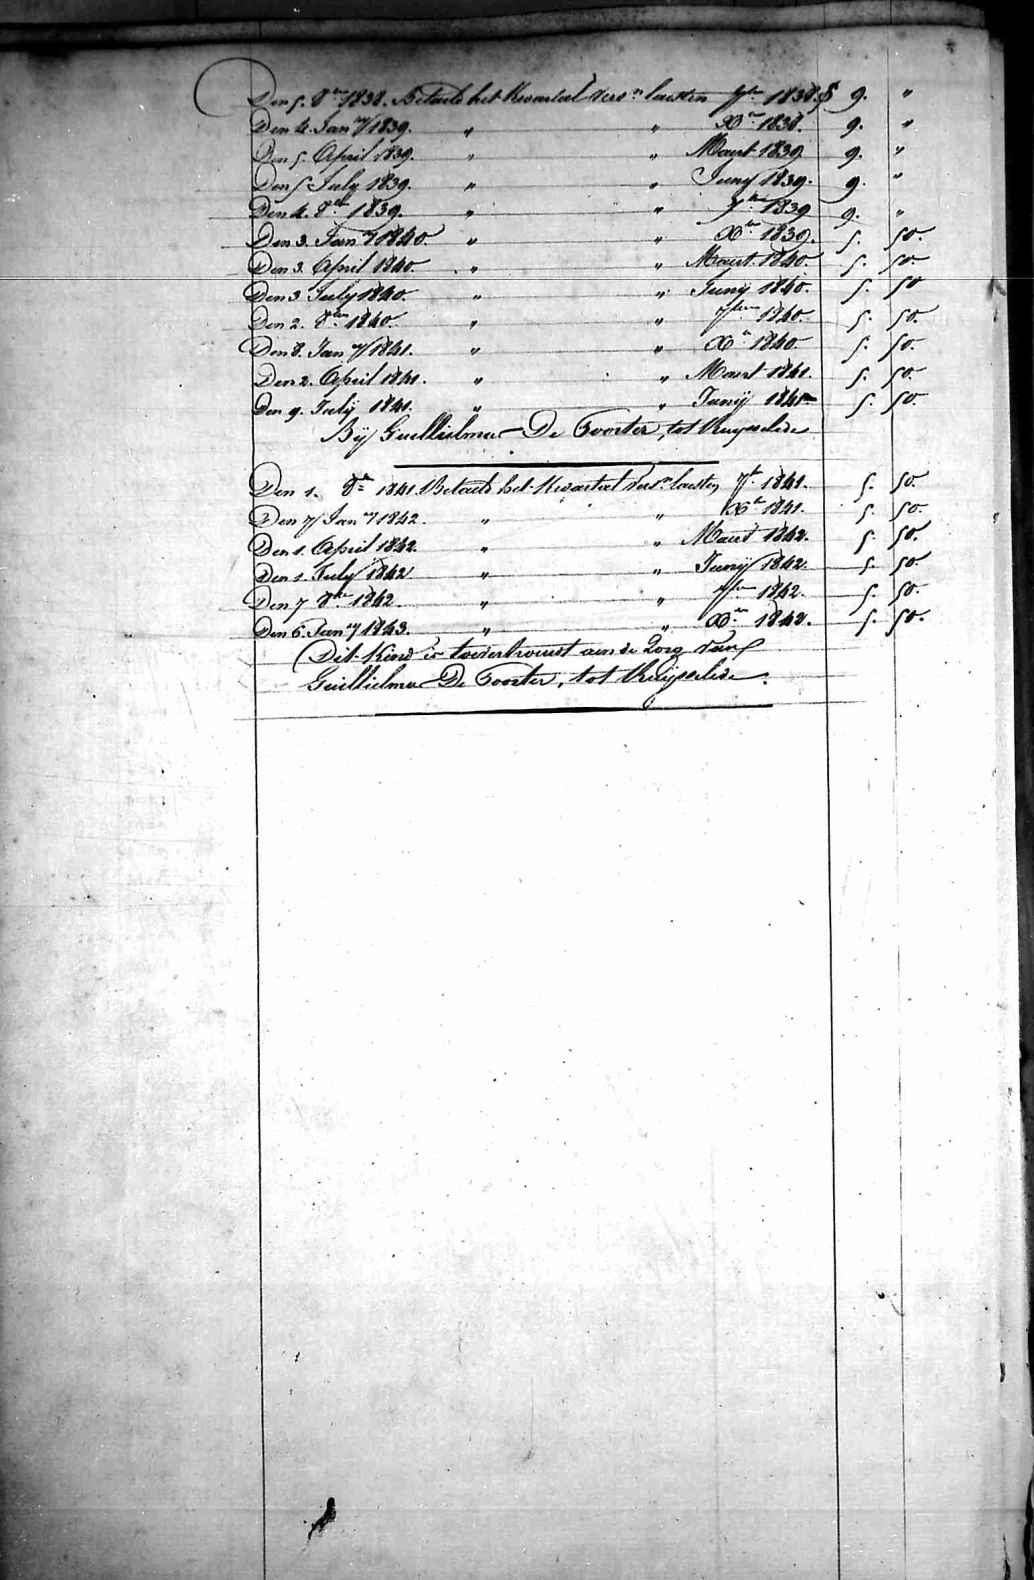 Den 5. 8bre 1838. Betaald het Kwartaal versn laesten 7bre 1838. f 9. "
Den 4. Jany 1839. " " Xbre 1838. 9. "
Den 5. April 1839. " " Maart 1839 9. "
Den 5 July 1839. " " Juny 1839. 9. "
Den 4. 8bre 1839. " " 7bre 1839 9. "
Den 3. Jany 1840. " " Xbre 1839. 5. 50.
Den 3. April 1840. " " Maart 1840. 5. 50.
Den 3 July 1840. " " Juny 1840. 5. 50
Den 2. 8bre 1840. " " 7bre 1840. 5. 50.
Den 8. Jany 1841. " " Xbre 1840 5. 50.
Den 2. April 1841. " " Maart 1841. 5. 50.
Den 9. July 1841. " " Junij 1841 5. 50.
Bij Guillielmus De Foorter, tot Ruysselede
Den 1. 8bre 1841. Betaald het Kwartaal versn laesten 7bre 1841. 5. 50
Den 7 Jany 1842. " " Xbre 1841. 5. 50.
Den 1. April 1842. " " Maart 1842. 5. 50.
Den 1. July 1842 " " Junij 1842. 5. 50.
Den 7 8bre 1842. " " 7bre 1842. 5. 50.
Den 6. Jany 1843. " " Xbre 1842. 5. 50.
Dit Kind is toevertrouwt aen de Zorg van
Guillielmus De Foorter, tot Ruijsselede.